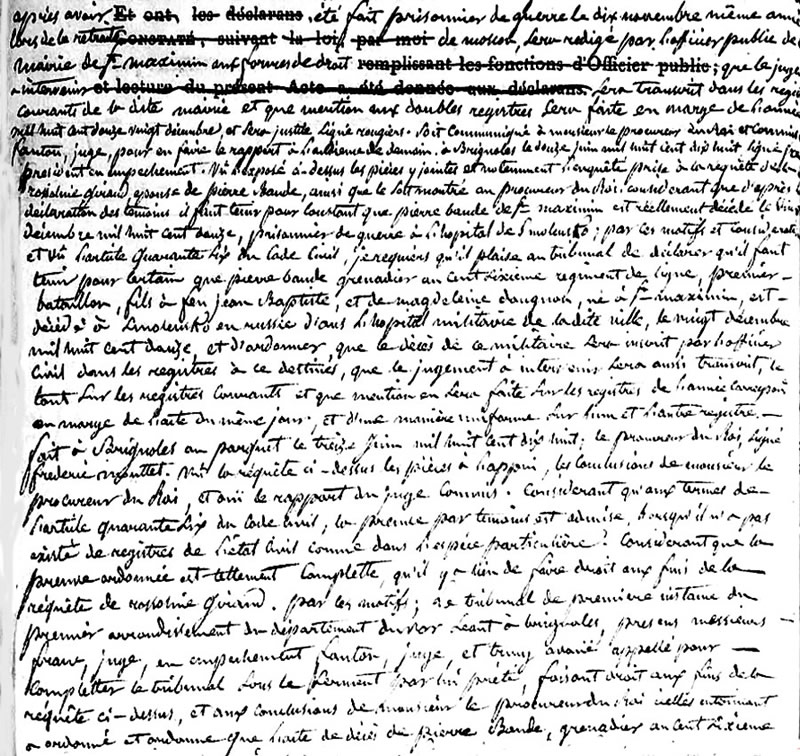 après avoir Et ont les déclarans été fait prisonnier de guerre le dix novembre même anné
lors de la retraite CONSTATÉ, suivant la loi, par moi de moscou, sera redigé par l'officier public de
mairie de St maximin aux formes de droit remplissant les fonctions d'Officier public; que le juge
a intervenir et lecture du présent Acte a été donnée aux déclarans sera transcrit dans les regi
courants de la dite mairie et que mention aux doubles registres sera faite en marge de l'année
mil huit cent douze vingt décembre, et sera justice signé rougiers. Soit communiqué à monsieur le procureur du Roi et commis
fanton, juge, pour en faire le rapport à l'audience de demain. à Brignoles le douze juin mil huit cent dix huit signé
président en empechement. Vu l'exposé ci-dessus les pièces y jointes et notamment l'enquête prise à la requête de la
rossoline Giraud epouse de pierre Baude, ainsi que le soit montré au procureur du Roi. considerant que d'après
declaration des temoins il faut tenir pour constant que pierre baude de St maximin est réellement décédé le vin
décembre mil huit cent douze, prisonnier de guerre à l'hopital de Smolensko; par ces motifs et considerati
et vû l'article quarante six du Code Civil, je requiers qu'il plaise au tribunal de déclarer qu'il faut
tenir pour certain que pierre baude grenadier au cent sixième regiment de ligne, premier -
bataillon, fils à feu jean Baptiste, et de magdeleine daugnon, né à St maximin, est -
décédé à Smolensko en russie dans l'hopital militaire de la dite ville, le vingt décembre
mil huit cent douze, et d'ordonner, que le décès de ce militaire sera inscrit par l'officier
Civil dans les registres à ce destinés, que le jugement à intervenir sera aussi transcrit, le
tout sur les registres courants et que mention en sera faite sur les registres de l'année
en marge de l'acte du même jour, et d'une manière uniforme sur l'un et l'autre registre. —
fait à Brignoles au parquet le treize juin mil huit cent dix huit; le procureur du Roi, signé
frederic mouttet. Vû la requête ci-dessus les pièces à l'appui, les conclusions de monsieur le
procureur du Roi, et oui le rapport du juge commis. Considérant qu'aux termes de —
l'article quarante six du Code Civil, la preuve par temoins est admise, lorsqu'il n'a pas
existé de registres de l'état Civil comme dans l'espèce particulière? Considerant que la
preuve ordonnée est tellement complette, qu'il y a lieu de faire droit aux fins de la —
requête de rossoline Giraud. par ces motifs; Le tribunal de première instance du
premier arrondissement du département du var séant à brignoles, présens messieurs —
franc, juge, en empechement fanton, juge, et trucy avoué appellé pour —
completter le tribunal sous le serment par lui prêté, faisant droit aux fins de la
requête ci-dessus, et aux conclusions de monsieur le procureur du Roi icelles entérinant
a ordonné et ordonne que l'acte de décès de Pierre Baude, grenadier au cent sixième